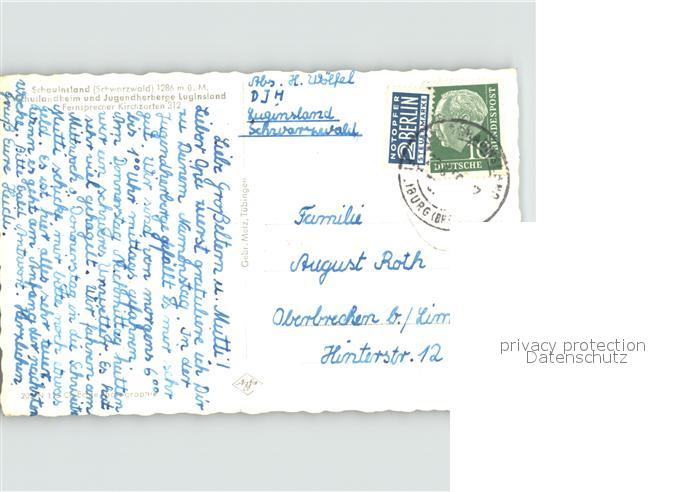 Schauinsland (Schwarzwald) 1286 m ü. M.
Schullandheim und Jugendherberge Luginsland
Fernsprecher Kirchzarten 312
Abs. H. Wölfel
DJH
Luginsland
Schwarzwald
NOTOPFER
2 BERLIN
STEUERMARKE
10
DEUTSCHE
BUNDESPOST
Gebr. Metz, Tübingen
Familie
August Roth
Oberbrechen b./Lim
Hinterstr. 12
Liebe Großeltern u. Mutti!
Lieber Opa zuerst gratuliere ich Dir
zu Deinem Namenstag. In der
Jugendherberge gefällt es mir sehr
gut. Wir sind von morgens 6 00
bis 1 00 Uhr mittags gefahren.
Am Donnerstag Nachmittag hatten
wir ein schweres Unwetter. Es hat
sehr viel gehagelt. Wir fahren am
Mittwoch, Donnerstag in die Schweiz.
Mutti schicke mir bitte noch etwas
Geld. Es ist hier alles sehr teuer.
Wenn es geht am Anfang der nächsten
Woche. Bitte bald Antwort. Herzlichen
Gruß Eure
privacy protection
Datenschutz